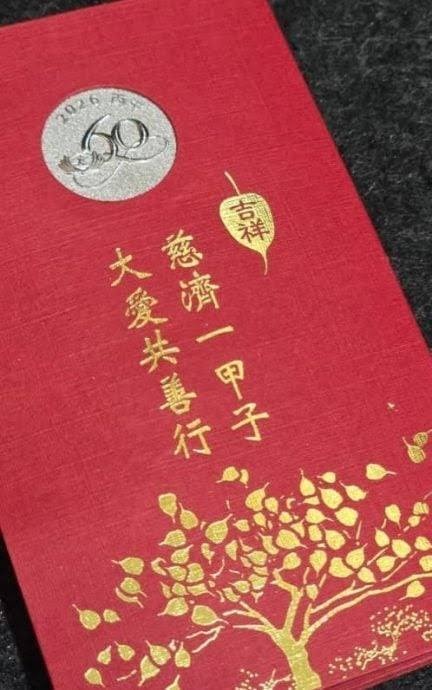 2026 丙午
60
吉祥
慈濟一甲子
大愛共善行